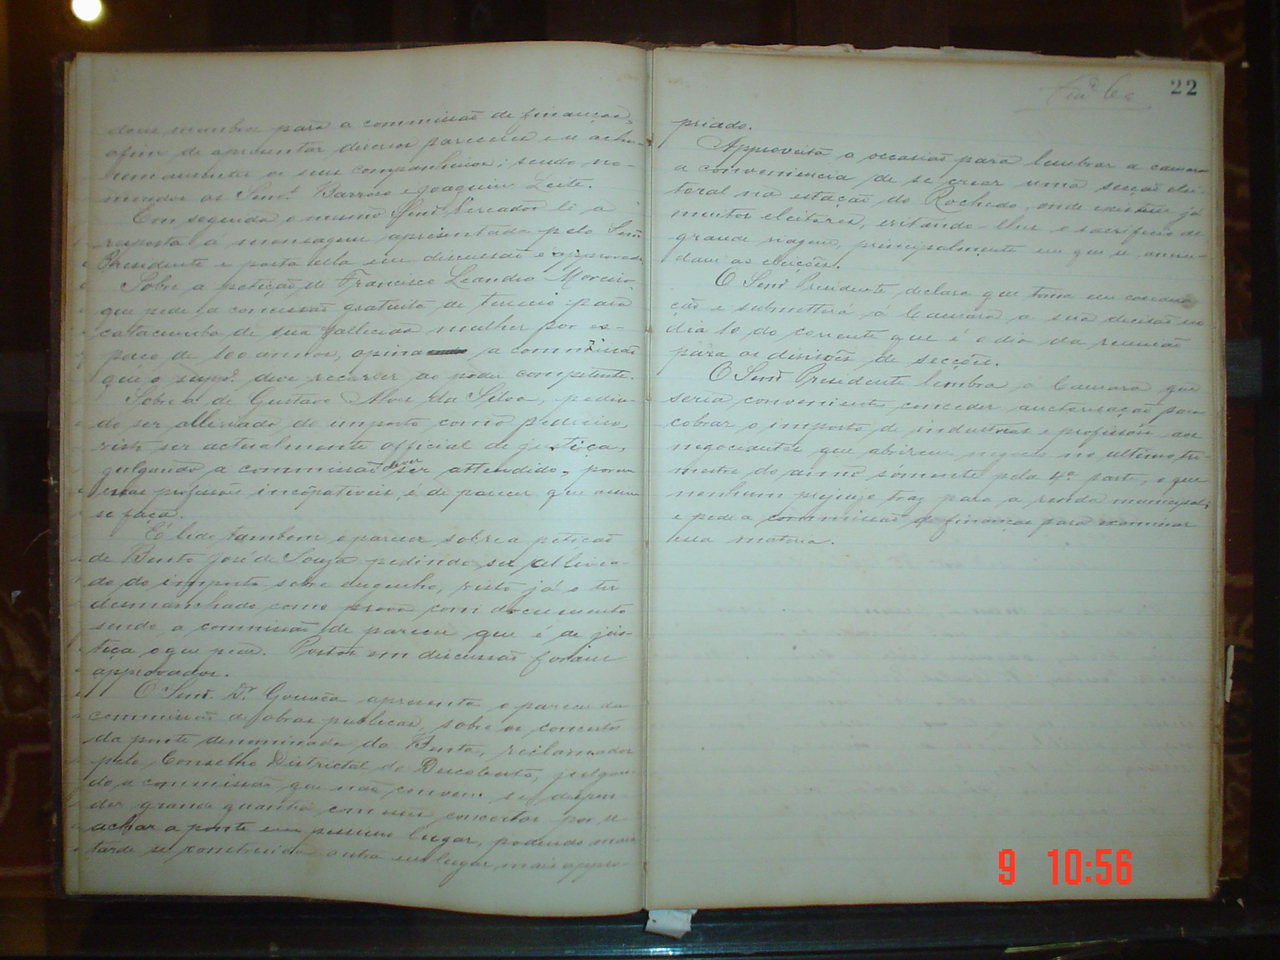 dous membros para a commissão de finanças,
afim de apresentar diversos pareceres e se acha-
rem ausentes os seus companheiros; sendo no-
meados os Senrs. Barroso e Joaquim Leite.
Em seguida o mesmo Senr. Vereador lê a
resposta á mensagem apresentada pelo Senr.
Presidente e posta ella em discussão é approvada.
Sobre a petição de Francisco Leandro Moreira,
que pede a concessão gratuita de terreno para
catacumba de sua fallecida mulher por es-
paço de 100 annos, opina a commissão
que o suppe. deve recorrer ao poder competente.
Sobre a de Gustavo Alves da Silva, pedin-
do ser alliviado do imposto como pedreiro,
visto ser actualmente official de justiça,
julgando a commissão ser attendido, por
essas profissões incompativeis, é de parecer que assim
se faça.
É lido tambem o parecer sobre a petição
de Bento José de Souza pedindo ser allivia-
do do imposto sobre engenho, visto já o ter
desmanchado como prova com documento
sendo a commissão de parecer que é de jus-
tiça o que pede. Postos em discussão foram
approvados.
O Senr. Dr. Gouvêa apresenta o parecer da
commissão de obras publicas, sobre os concertos
da ponte denominada da reclamados
pelo Conselho Districtal do Descoberto, julgan-
do a commissão que não convem se dispen-
der grande quantia com um concertos por se
achar a ponte em pessimo lugar, podendo mais
tarde ser construida outra em lugar mais appro-
22
priado.
Approveita a occasião para lembrar a camara
a conveniencia de se crear uma secção elei-
toral na estação do Rochedo, onde existem já
muitos eleitores, evitando-lhes o sacrificio de
grande viagem, principalmente em que se
dam as eleições.
O Senr. Presidente declara que toma em considera-
ção e submetterá á Camara a sua decisão no
dia 10 do corrente que é o dia da reunião
para as divisões de secções.
O Senr. Presidente lembra a Camara que
seria conveniente conceder auctorisação para
cobrar o imposto de industrias e profissões aos
negociantes que abrirem negocio no ultimo tri-
mestre do anno sómente pela 4ª parte, o que
nenhum prejuizo traz para a renda municipal;
e pede a commissão de finanças para examinar
essa materia.
9 10:56